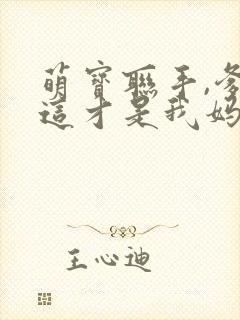 萌寶聯手,爹
這才是我媽
王心迪